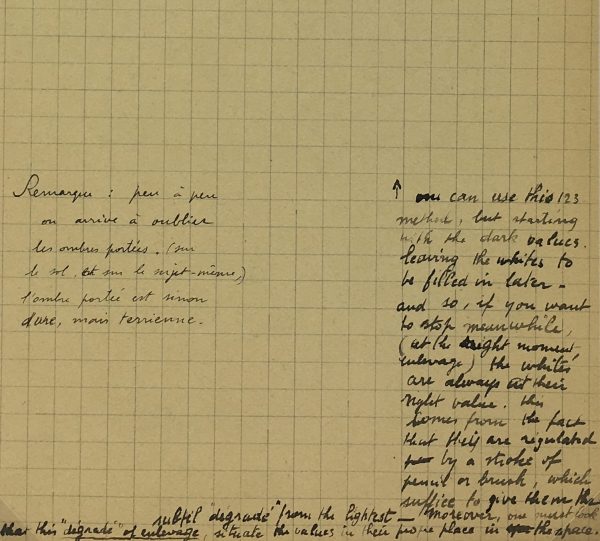 Remarque : peu à peu
on arrive à oublier
les ombres portées. (sur
le sol, et sur le sujet-même,)
l'ombre portée est sinon
dure, mais terrienne.
↑ one can use this 123
methode, but starting
with the dark values.
leaving the whites to
be filled in later -
and so, if you want
to stop meanwhile,
(at the right moment
enlevage) the whites
are always at their
right value. this
comes from the fact
that their are regulated
by a stroke of
pencil or brush, which
suffice to give them the
subtil "dégradé" from the lightest — Moreover, one must look
that this "dégradé" of enlevage, situate the values in their place in the space.